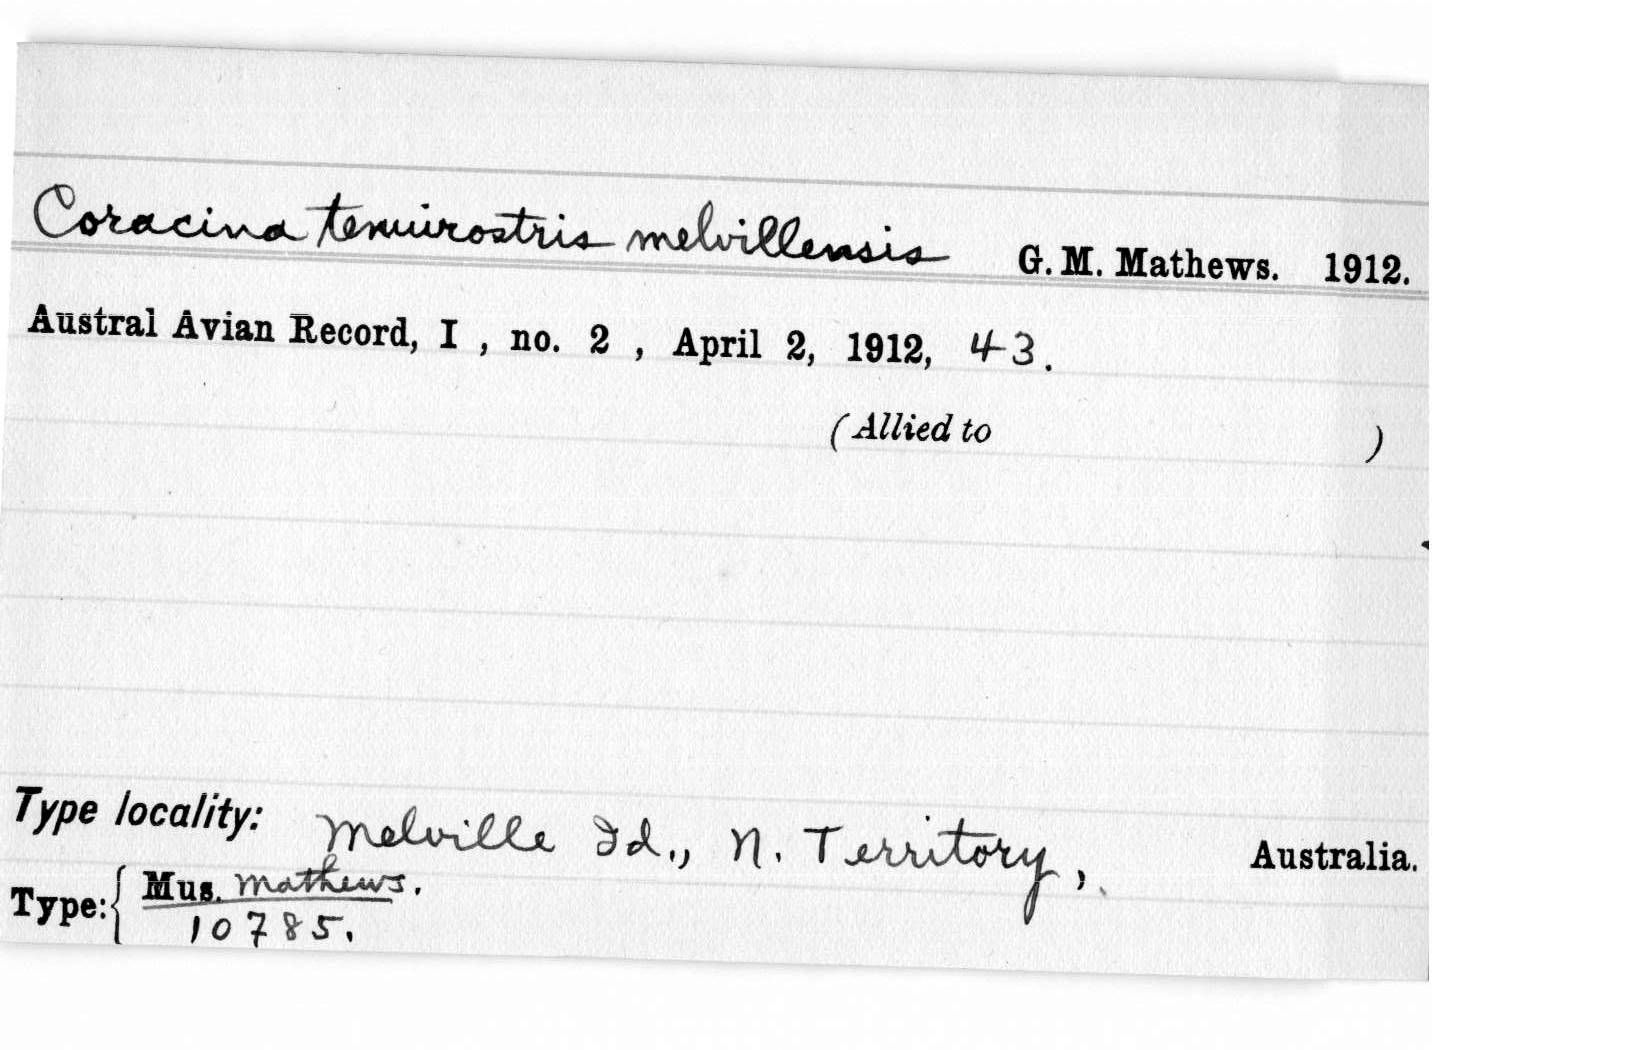 Coracina tenuirostris melvillensis G. M. Mathews. 1912.
Austral Avian Record, I , no. 2 , April 2, 1912, 43.
(Allied to )
Type locality: Melville Id., N. Territory, Australia.
Type: { Mus. Mathews.
10785.